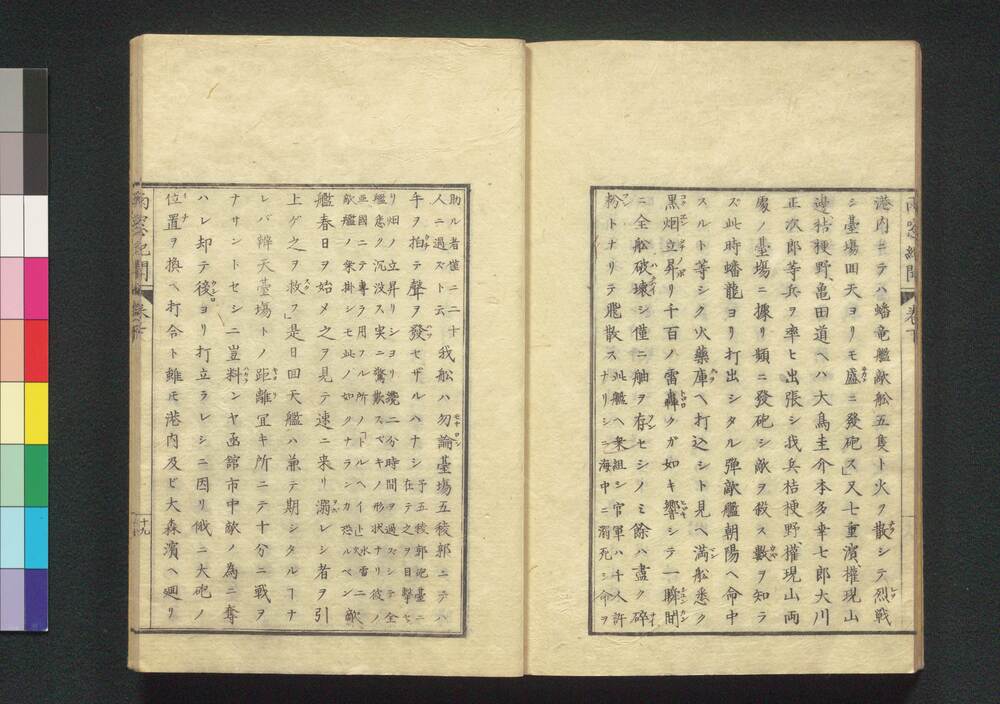 港内ニテハ蟠竜艦敵舩五隻ト火ヲ散シテ烈戦
シ臺場回天ヨリモ盛ニ發砲ス」又七重濱、權現山
邊、桔梗野、亀田道ヘハ大鳥圭介本多幸七郎大川
正次郎等兵ヲ率ヒ出張シ我兵桔梗野、權現山両
處ノ臺場ニ據リ頻ニ發砲シ敵ヲ殺ス數ヲ知ラ
ズ此時蟠龍ヨリ打出シタル彈敵艦朝陽ヘ命中
スルト等シク火藥庫ヘ打込シト見ヘ満舩悉ク
黒烟立昇リ千百ノ雷轟クガ如キ響シテ一瞬間
ニ全舩破壊シ僅ニ舳ヲ存セシノミ餘ハ盡ク碎
粉トナリテ飛散ス此艦ヘ乗組シ官軍ハ千人許ナリシニ海中ニ溺死シ命ヲ
助ル者僅ニ二十人ニ過ズト云我舩ハ勿論臺場五稜郭ニテハ
手ヲ拍テ聲ヲ發セザルハナシ予五稜郭砲臺ニ在テ之ヲ目撃セ
リ烟ノ立昇リシヨリ纔ニ二分時間ヲ過ズシテ全艦悉ク沉没ス実ニ驚歎スベキノ形状ナリ彼ノ
亜國ニテ專ラ用フル所ノ「トルヘイ止ス」水雷ニ敵艦ノ乗掛シモ此ノ如クナランカ恐ルベシ敵
艦春日ヲ始メ之ヲ見テ速ニ来リ溺レシ者ヲ引
上ゲ之ヲ救フ」是日回天艦ハ兼テ期シタルヿナ
レバ辨天臺場トノ距離宜キ所ニテ十分ニ戰ヲ
ナサントセシニ豈料ンヤ函館市中敵ノ為ニ奪
ハレ却テ後ヨリ打立ラレシニ因リ俄ニ大砲ノ
位置ヲ換ヘ打合ト雖モ港内及ビ大森濱ヘ廻リ
十九